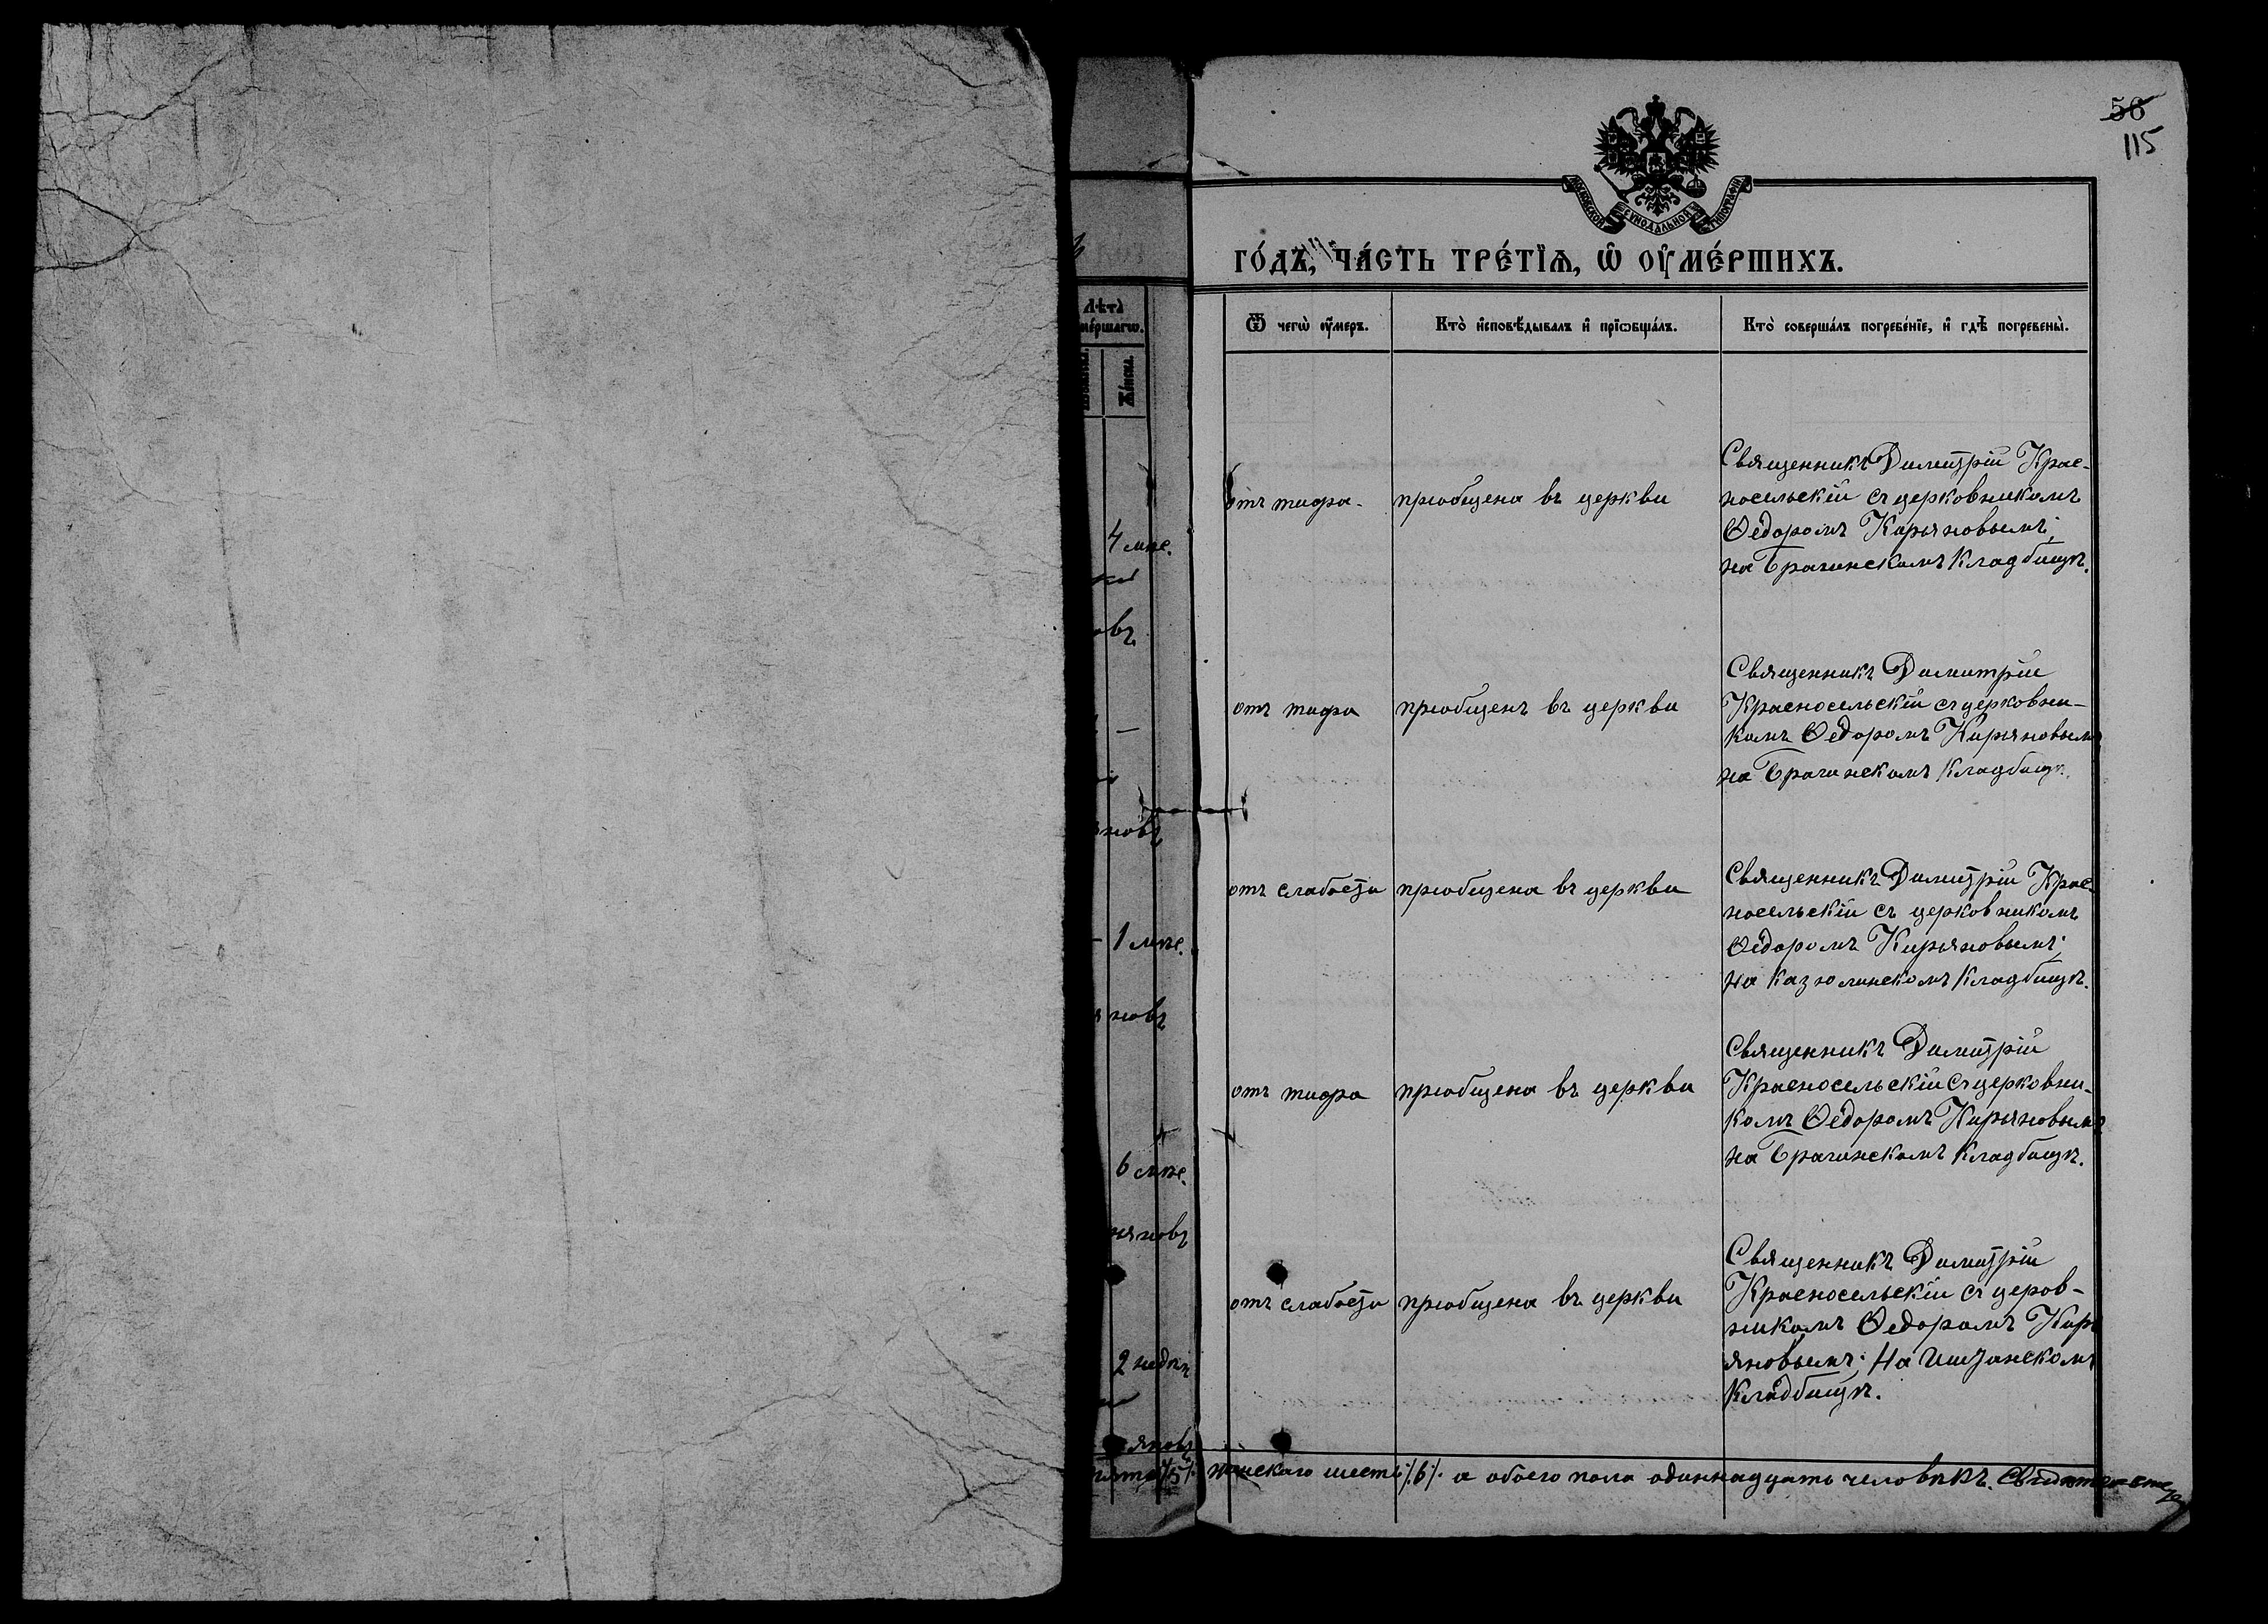 56
115
МОСКОВСКОЙ СѴНОДАЛЬНОЙ ТИПОГРАФІИ
ГО́ДЪ, ЧА́СТЬ ТРЕ́ТІѦ, Ѡ҆ ОУ҆МЕ́РШИХЪ.
Лѣта̀
Же́нска.
Ѿ чегѡ̀ ᲂу҆́меръ.
Кто̀ и҆сповѣ́дывалъ и҆ прїѡбща́лъ.
Кто̀ соверша́лъ погребе́нїе, и҆ гдѣ̀ погребены̀.
4 мѣс.
отъ тифа.
приобщена въ церкви
Священникъ Димитрій Крас-
носельскій съ церковникомъ
Ѳедоромъ Кирьяновымъ;
на Брагинскомъ Кладбищѣ.
овъ
отъ тифа
приобщенъ въ церкви
Священникъ Димитрій
Красносельскій съ церковни-
комъ Ѳедоромъ Кирьяновымъ
на Брагинскомъ Кладбищѣ.
новъ
1 мѣс.
отъ слабости
приобщена въ церкви
Священникъ Димитрій Крас-
носельскій съ церковникомъ
Ѳедоромъ Кирьяновымъ;
на Казюлинскомъ Кладбищѣ.
яновъ
6 мѣс.
отъ тифа
приобщена въ церкви
Священникъ Димитрій
Красносельскій съ церковни-
комъ Ѳедоромъ Кирьяновымъ
на Брагинскомъ Кладбищѣ.
ьяновъ
2 недѣл
отъ слабости
приобщена въ церкви
Священникъ Димитрій
Красносельскій съ церов-
никомъ Ѳедоромъ Кирь
яновымъ; На
Кладбищѣ.
яновъ
женскаго шесть /6/. а обоего пола одиннадцать человѣкъ.